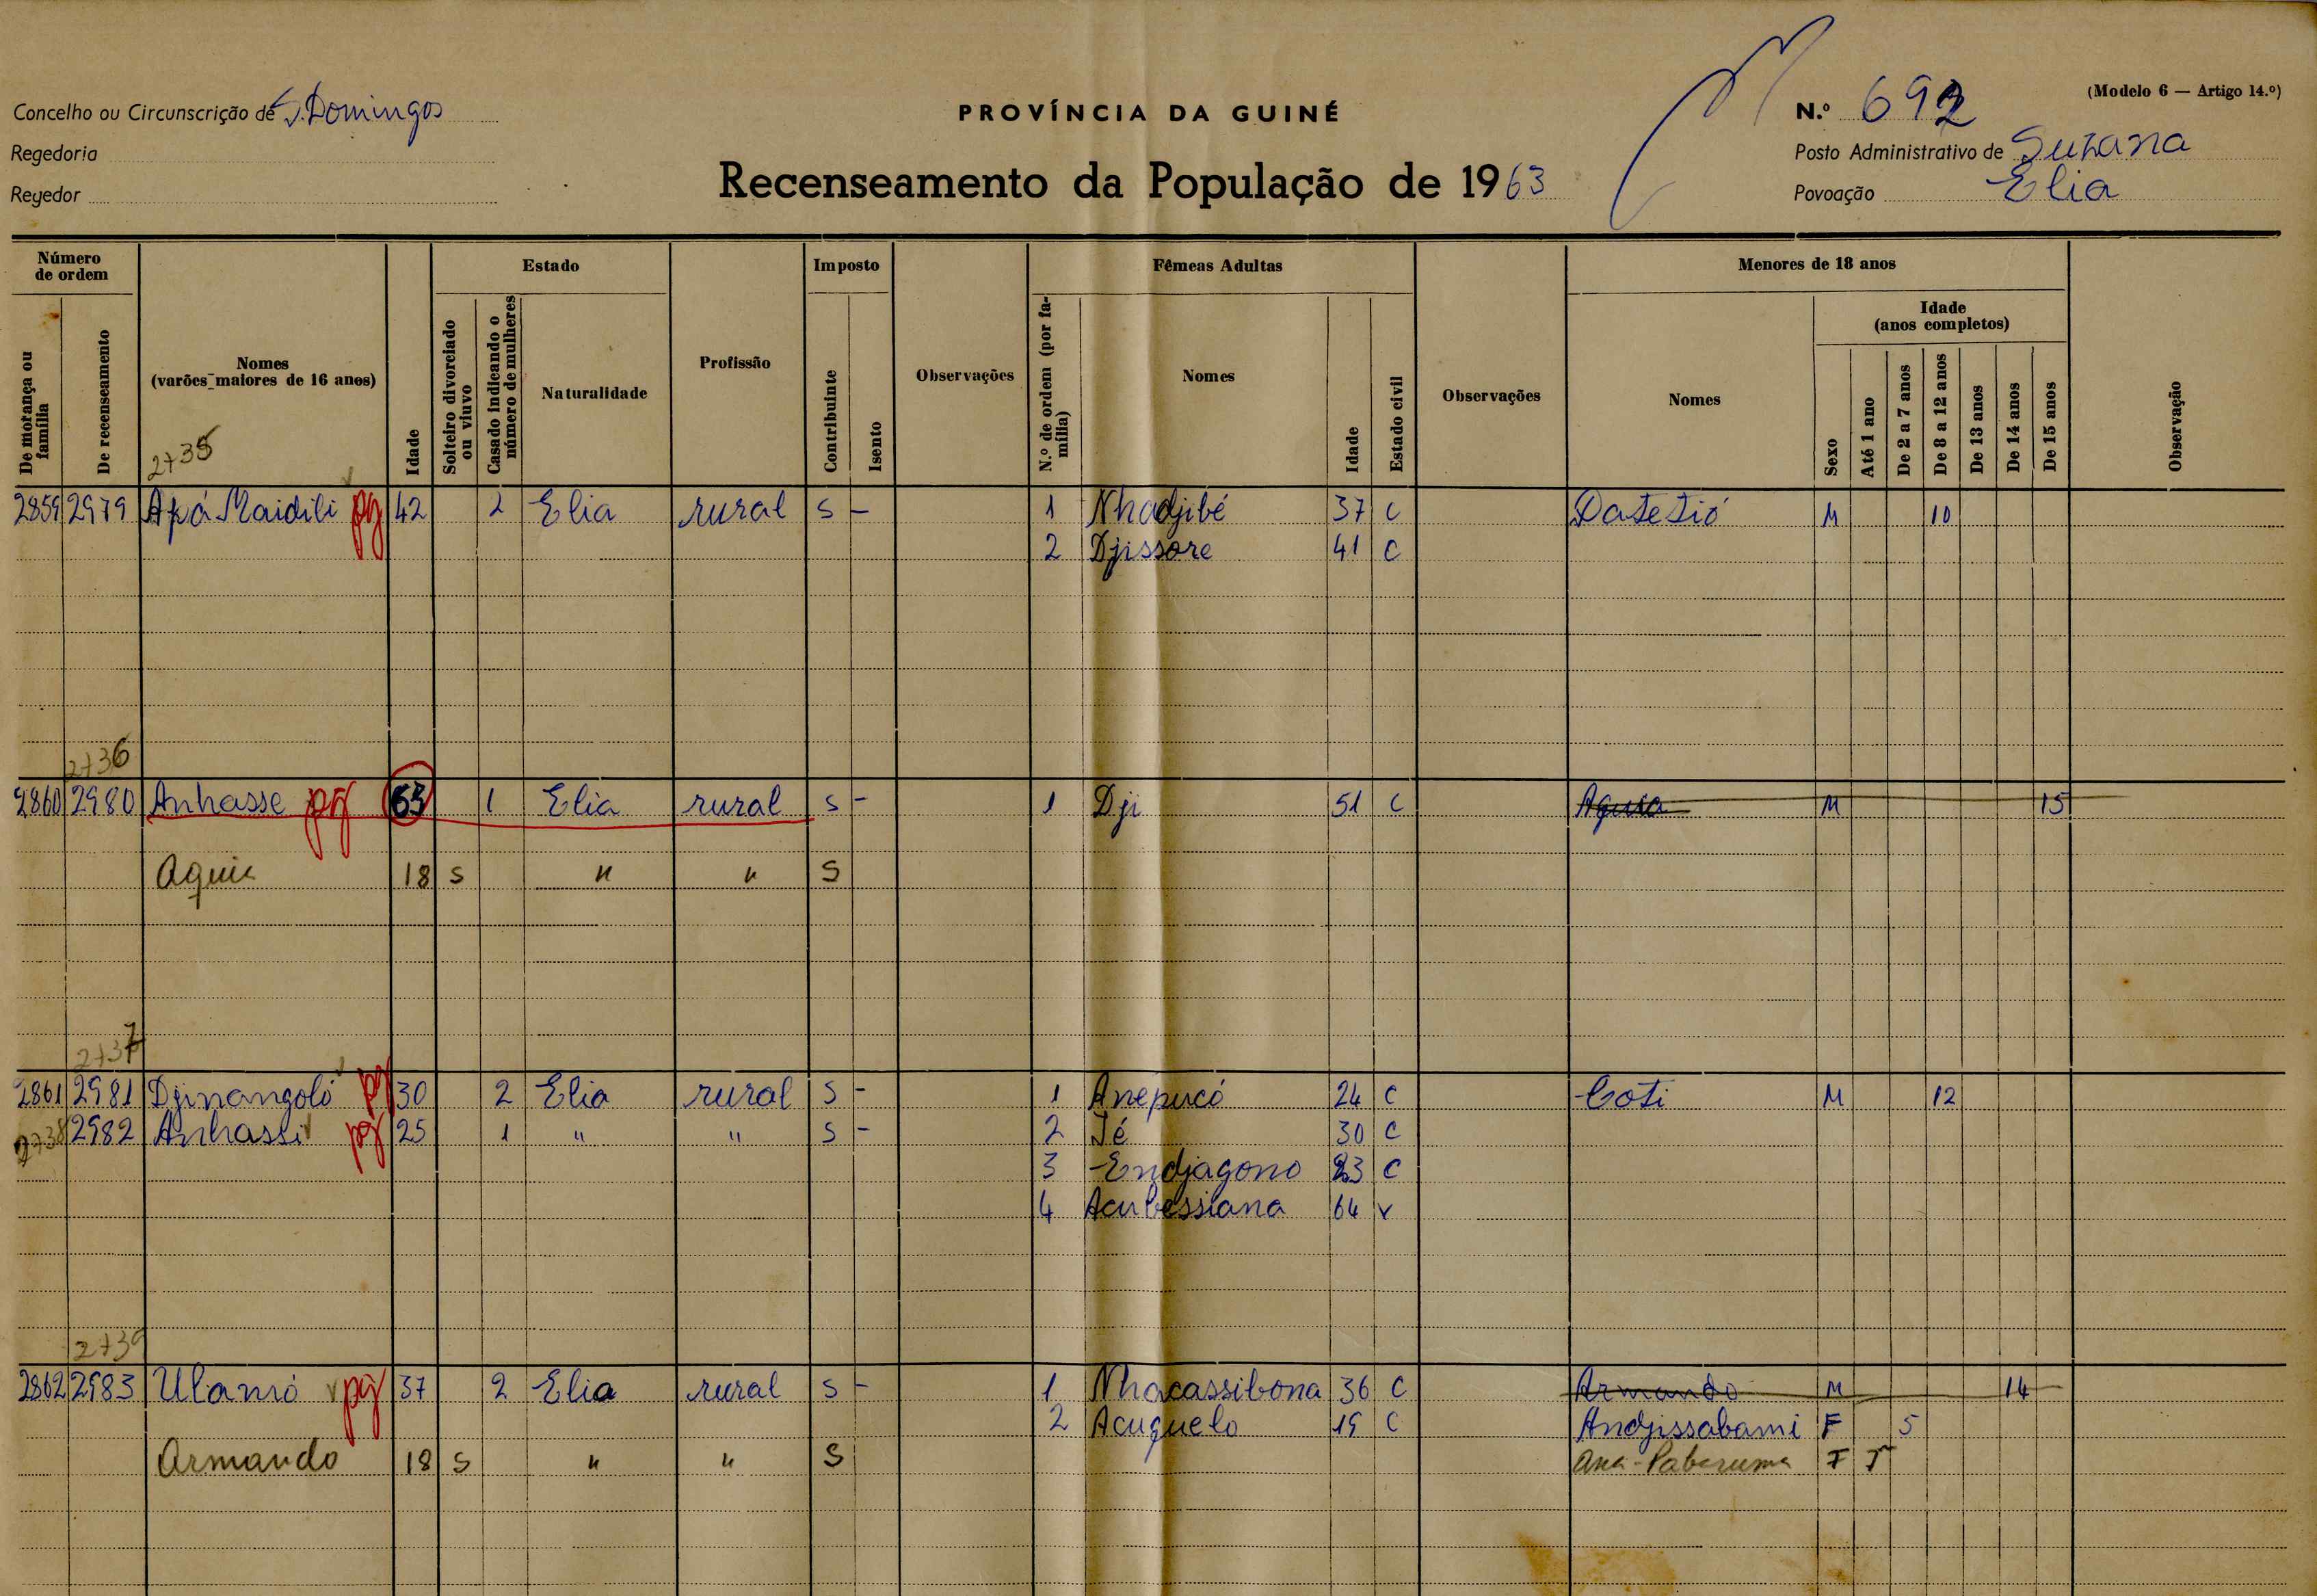 (Modelo 6 — Artigo 14.º)
Concelho ou Circunscrição de S. Domingos
PROVÍNCIA DA GUINÉ
N.º 692
Regedoria
Posto Administrativo de Suzana
Recenseamento da População de 1963
Regedor
Povoação Elia
Número de ordem
Estado
Imposto
Fêmeas Adultas
Menores de 18 anos
Idade (anos completos)
De morança ou família
De recenseamento
Nomes (varões maiores de 16 anos)
Idade
Solteiro divorciado ou viuvo
Casado indicando o número de mulheres
Naturalidade
Profissão
Contribuinte
Isento
Observações
N.º de ordem (por família)
Nomes
Idade
Estado civil
Observações
Nomes
Sexo
Até 1 ano
De 2 a 7 anos
De 8 a 12 anos
De 13 anos
De 14 anos
De 15 anos
Observação
2735
2859 2979 Apá Maidili pg 42 2 Elia rural S - 1 Nhadjibé 37 C Datetió M 10
2 Djissore 41 C
2736
2860 2980 Anhasse pg 63 1 Elia rural S - 1 Dji 51 C Aguia M 15
Aguia 18 S " " S
2737
2861 2981 Djinangoló pg 30 2 Elia rural S - 1 Anepucó 24 C Coti M 12
2738 2982 Anhassi pg 25 1 " " S - 2 Jé 30 C
3 Endjagono 23 C
4 Acubessiana 64 V
2739
2862 2983 Ulamó pg 37 2 Elia rural S - 1 Nhacassibona 36 C Armando M 14
2 Acuguelo 19 C Andjissabami F 5
Armando 18 S " " S Ana-Paberuma F